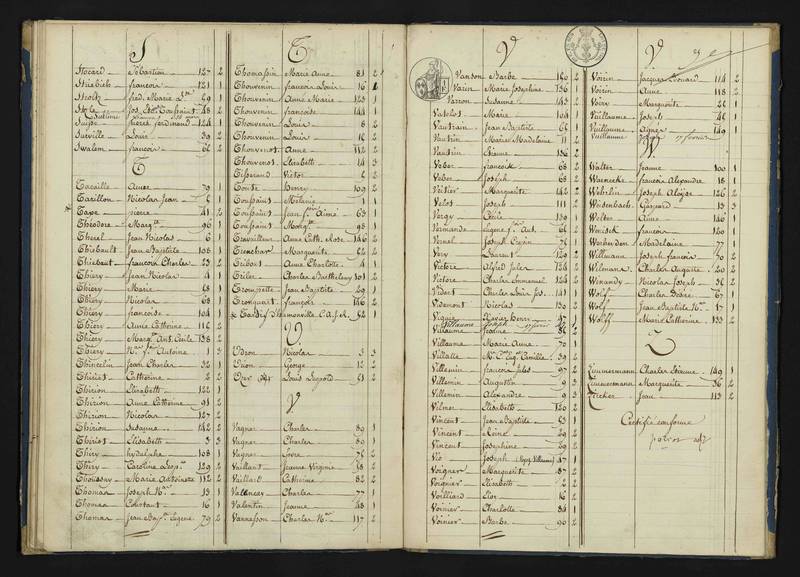 S
Stocard Sébastien 127 2
Striebich françois 121 1
Strolz 29 1
Suisse 124 1
Surville Louis 39 2
Swalem françois 62 2
T
Tacaille 79 1
Tarillon Nicolas Jean 1
Tape pierre 41 2
Théodore Marg.te 96 1
Thérel Jean Nicolas 6 1
Thiébault Jean Baptiste 108 1
Thiébaut françois Charles 23 2
Thiéry Jean Nicolas 4 1
Thiéry Marie 18 1
Thiéry Nicolas 68 1
Thiéry françoise 104 1
Thiéry Anne Catherine 112 2
Thiéry Marg.te Ant. Cécile 138 2
Thiéry Antoine 1 3
Thincelin Jean Charles 32 1
Thiriet Catherine 2 2
Thirion Elisabeth 122 1
Thirion Anne Catherine 91 2
Thirion Nicolas 127 2
Thirion Susanne 142 2
Thiriot Elisabeth 3 3
Thiry hydulphe 108 1
Thiry Caroline 129 2
Thouissy Marie Antoinette 112 2
Thomas Joseph N.as 13 1
Thomas Constant 16 1
Thomas Jean Bap. Eugène 79 2
T
Thomassin Marie Anne 81 2
Thouvenin françois Louis 16 1
Thouvenin Anne Marie 123 1
Thouvenin françoise 144 1
Thouvenin Louis 8 2
Thouvenin Louis 10 2
Thouvenot Anne 112 2
Thouvenot Elisabeth 14 3
Tisserand Victor 2 2
Tonte Henry 109 2
Toussaint Mélanie 1 1
Toussaint Jean f.ois Aimé 63 1
Toussaint Marg.te 98 1
Travailleur Anne Cath. Rose 146 2
Trenchar Marguerite 22 2
Tribout Anne Charlotte 4 1
Triler Charles Barthelemy 101 2
Trompette Jean Baptiste 29 1
Tronquart françois 116 2
Tardif d'hamonville 52 1
U
Udron Nicolas 3 3
Union George 12 2
Louis Léopold 51 2
V
Vagner Charles 80 1
Vagner Charles 80 1
Vagner 76 2
Vaillant Jeanne Virginie 18 2
Vaillard Catherine 82 2
Valencier Charles 77 1
Valentin Jeanne 48 1
Vannesson Charles N.as 117 2
V
Vanson Barbe 140 2
Varin Marie Josephine 136 2
Varron Susanne 143 2
Vatelot Marie 104 1
Vautrain Jean Baptiste 62 1
Vautrin Marie Madelaine 11 2
Vautrin Etienne 132 2
Veber francois 68 2
Veber Joseph 68 2
Veltier Marguerite 142 2
Velos Joseph 111 2
Vergy Cécile 130 1
Vermande Eugène f.ois Aut. 62 2
Vernel Joseph 76 2
Very Laurent 129 2
Victoire Alfred Jules 124 2
Victoire Charles Emmanuel 124 2
Vidart Charles Louis Jos. 141 1
Videmont Nicolas 130 2
Vigneu Xavier Henri 47 2
Villaume Joseph
Villaume 82 2
Villaume Marie Anne 70 1
Villatte Camille 39 2
Villemin françois Jules 97 2
Villemin Augustin 9 3
Villemin Alexandre 9 3
Vilmer Elisabeth 120 2
Vincent Jean Baptiste 23 1
Vincent Reine 29 2
Vincent Josephine 29 2
Vio Joseph (voyez Villaume) 47 1
Voignier Marguerite 87 2
Voignier Elisabeth 2 2
Voilliard 16 2
Voinier Charlotte 84 1
Voinier Barbe 90 2
V
Voirin Jacques Edouard 114 2
Voirin Anne 118 2
Voiry Marguerite 21 1
Vuillaume Joseph 42 1
Vuillaume Agnès 149 1
Vuillaume Joseph 17 février
W
Walter Jeanne 100 1
Warnecke francois Alexandre 18 1
Webirlin Joseph Aloïse 126 2
Weisenbach Gaspard 13 3
Welter Anne 146 1
Wenisck francois 140 1
Madelaine 77 1
Villmann Joseph francois 70 2
Wilmard Charles Auguste 20 2
Winandy Nicolas Joseph 32 2
Wolf Charles Désiré 67 1
Wolf Jean Baptiste N.as 17 1
Wolff Marie Catherine 133 2
Z
Zimmermann Charles Etienne 149 1
Zimmermann Marguerite 36 2
Zircker Jean 113 2
Certifié conforme